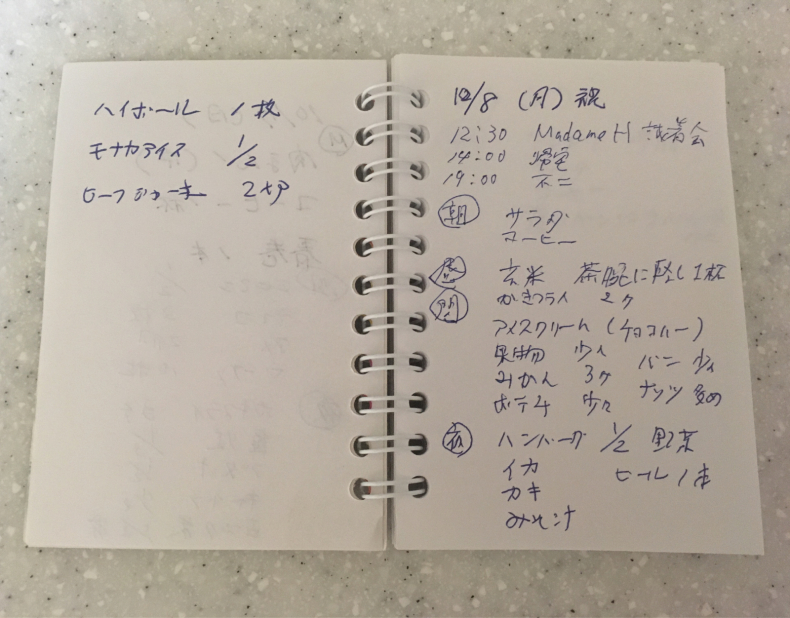 ハイボール 1杯
モナカアイス 1/2
ビーフジャーキー 2切
10/8 (月) 祝
12:30 Madame H 読書会
14:00 帰宅
19:00 不二
朝 サラダ
コーヒー
昼 玄米 茶碗に軽く1杯
間 かきフライ 2ケ
アイスクリーム (チョコバー)
果物 少々 パン 少々
みかん 3ケ ナッツ 多め
おイモ 少々
夜 ハンバーグ 1/2 野菜
イカ ビール 1本
カキ
みそ汁